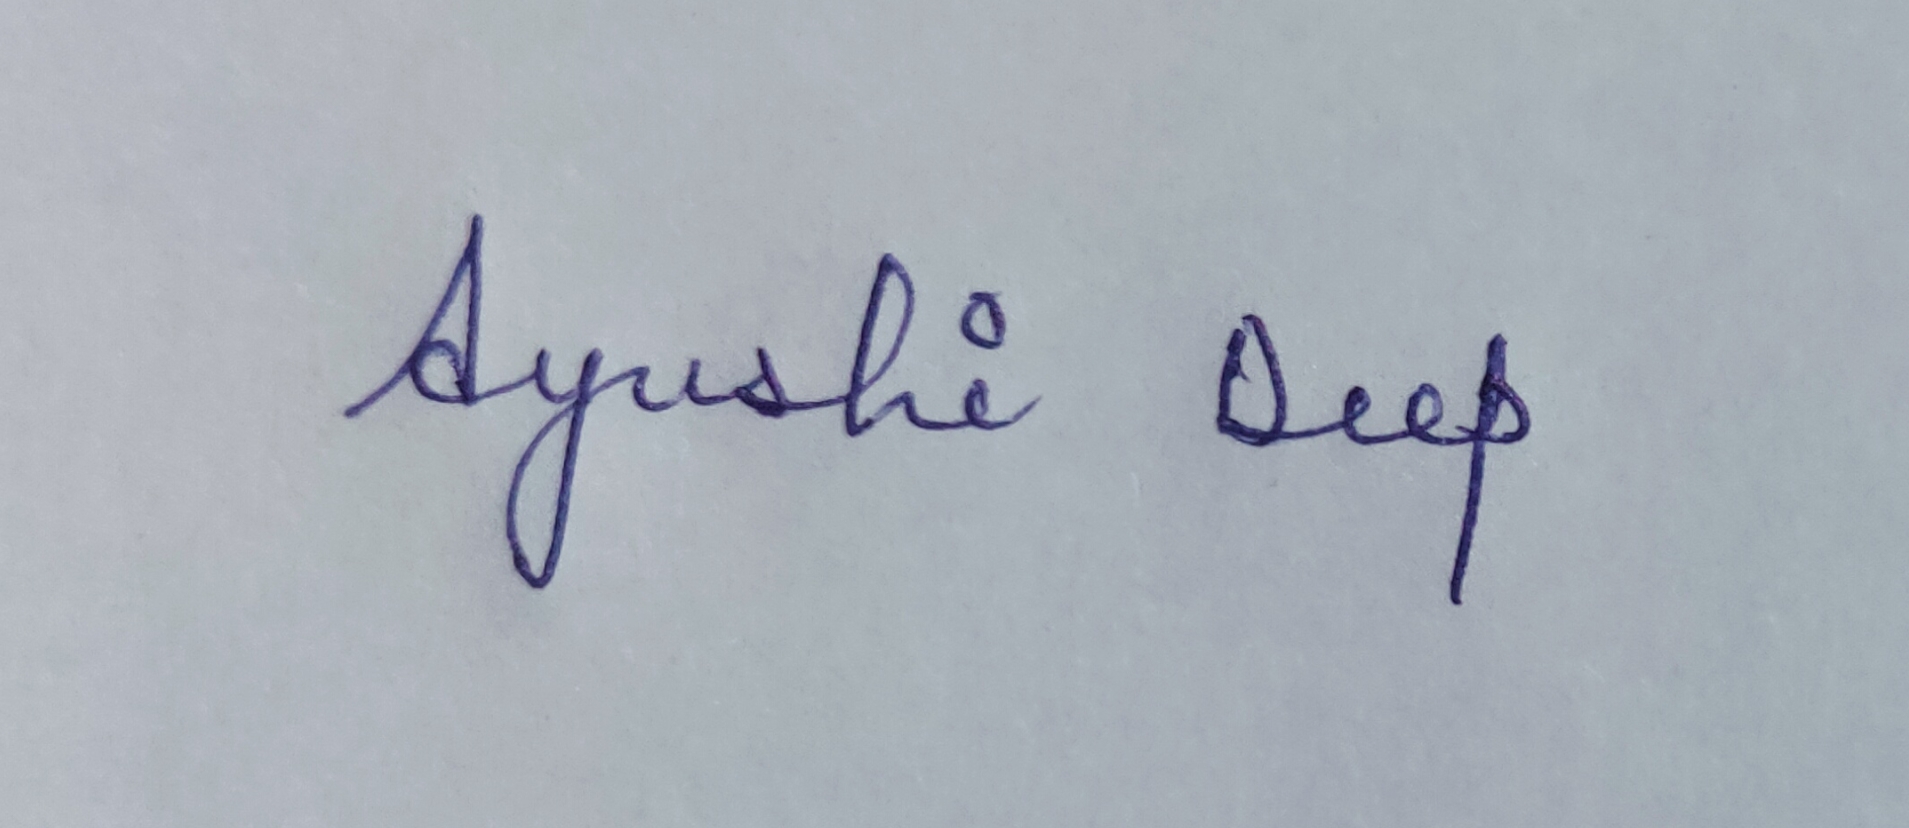 Ayushi Deep